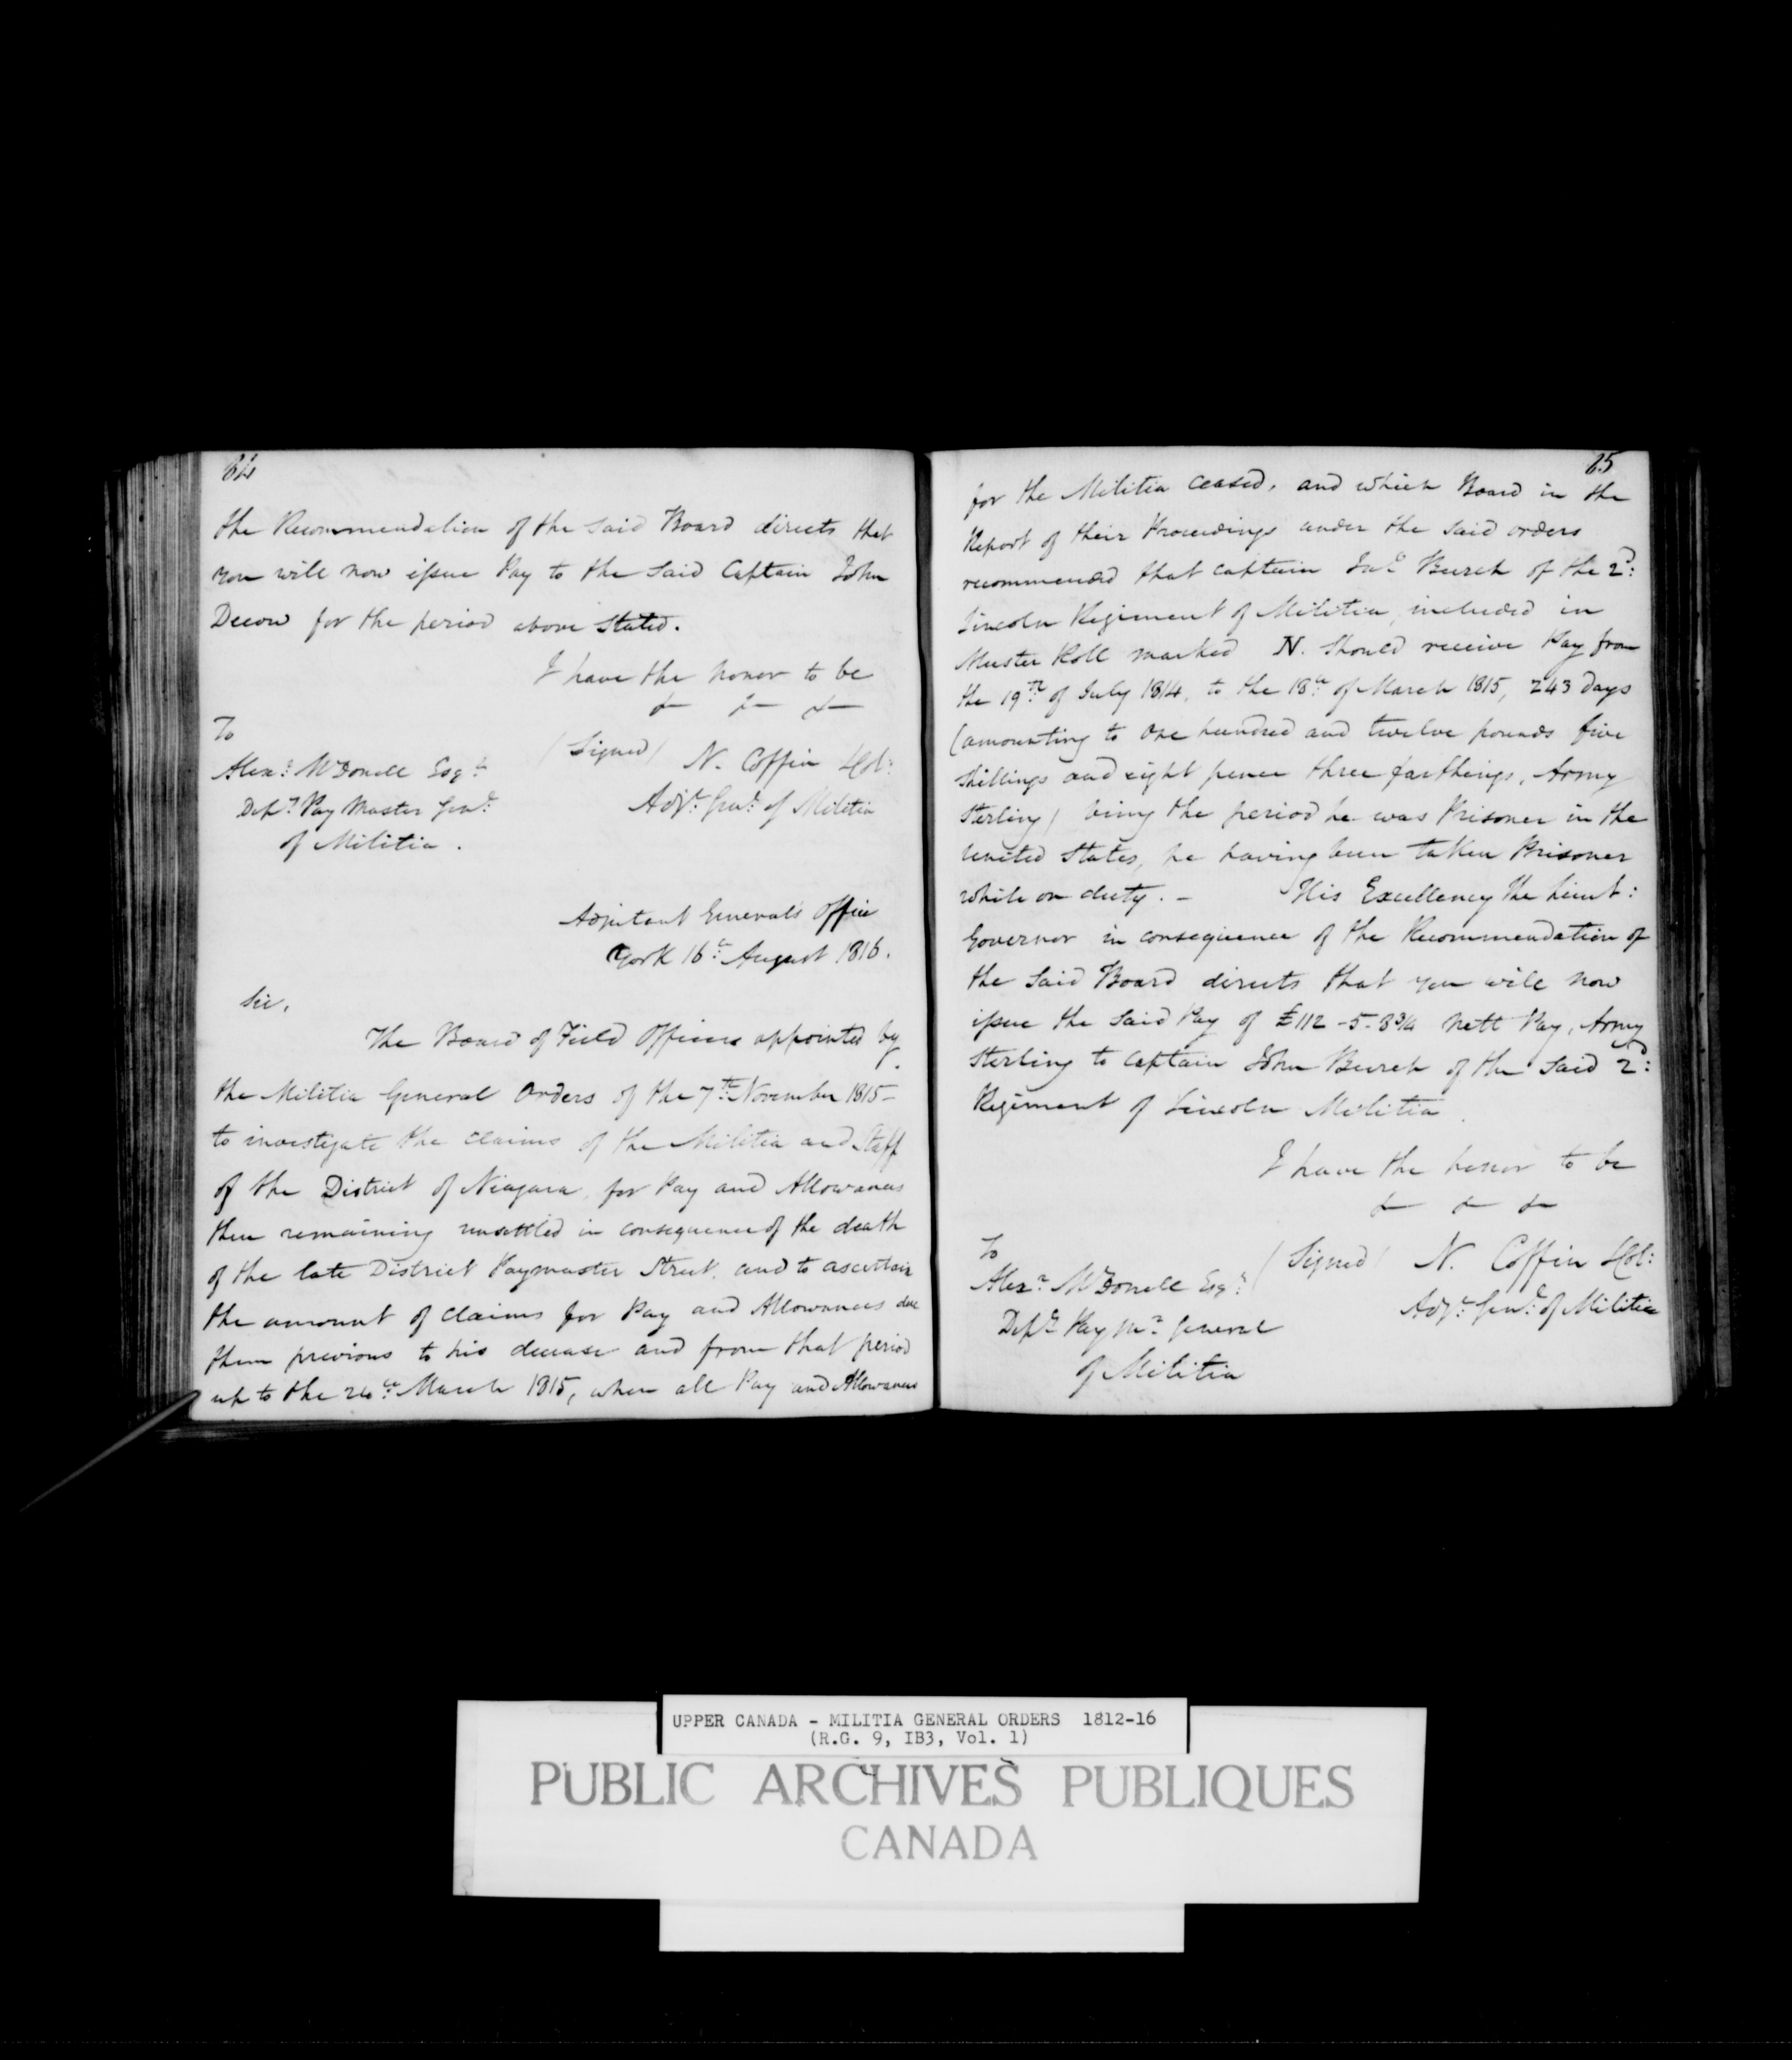 64
the Recommendation of the said Board directs that
you will now issue Pay to the said Captain John
Decow for the period above stated.
I have the honor to be
&c &c &c
To
Alexr. McDonell Esqr.
(Signed) N. Coffin Lt Col:
Depy. Pay Master Genl.
Adjt. Genl. of Militia
of Militia.
Adjutant General's Office
York 16th August 1816.
Sir,
The Board of Field Officers appointed by
the Militia General Orders of the 7th November 1815-
to investigate the claims of the Militia and Staff
of the District of Niagara, for Pay and Allowances
then remaining unsettled in consequence of the death
of the late District Paymaster Street, and to ascertain
the amount of claims for Pay and Allowances due
them previous to his decease and from that period
up to the 24th March 1815, when all Pay and Allowances
65
for the Militia ceased, and which Board in the
Report of their Proceedings under the said orders
recommended that captain Jno. Burch of the 2d:
Lincoln Regiment of Militia, included in
Muster Roll marked N. Should receive Pay from
the 19th of July 1814, to the 18th of March 1815, 243 days
(amounting to One hundred and twelve pounds five
shillings and eight pence three farthings, Army
Sterling) being the period he was Prisoner in the
United States, he having been taken Prisoner
while on duty. - His Excellency the Lieut:
Governor in consequence of the Recommendation of
the said Board directs that you will now
issue the said Pay of £112-5-8¾ Nett Pay, Army
Sterling to Captain John Burch of the said 2d:
Regiment of Lincoln Militia.
I have the honor to be
&c &c &c
To
Alexr. McDonell Esqr.
(Signed) N. Coffin Lt Col:
Depy. Pay Mr. General
Adjt. Genl. of Militia
of Militia
UPPER CANADA - MILITIA GENERAL ORDERS 1812-16
(R.G. 9, IB3, Vol. 1)
PUBLIC ARCHIVES PUBLIQUES
CANADA